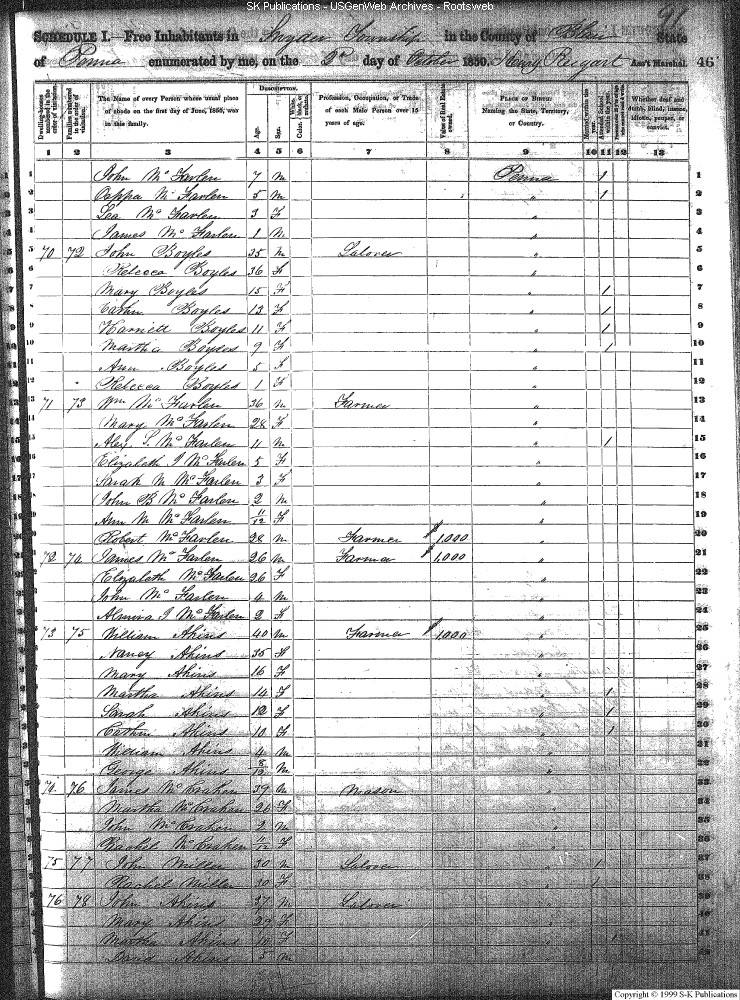 SK Publications - USGenWeb Archives - Rootsweb
91
SCHEDULE I.—Free Inhabitants in Snyder Township in the County of Blair State
of Penna enumerated by me, on the 2d day of October 1850. Henry Ass't Marshal. 46
Dwelling-houses numbered in the order of visitation.
Families numbered in the order of visitation.
The Name of every Person whose usual place of abode on the first day of June, 1850, was in this family.
DESCRIPTION.
Age.
Sex.
Color.
Profession, Occupation, or Trade of each Male Person over 15 years of age.
Value of Real Estate owned.
PLACE OF BIRTH
Naming the State, Territory, or Country.
Married within the year.
Whether deaf and dumb, blind, insane, idiotic, pauper, or convict.
1 2 3 4 5 6 7 8 9 10 11 12 13
1 John McFarlen 7 M Penna 1 1
2 McFarlen 5 M " 1 2
3 McFarlen 3 F " 3
4 James McFarlen 1 M " 4
5 70 72 John Boyles 35 M Laborer " 5
6 Rebecca Boyles 36 F " 6
7 Mary Boyles 15 F " 1 7
8 Boyles 13 F " 1 8
9 Harriett Boyles 11 F " 1 9
10 Martha Boyles 9 F " 1 10
11 Ann Boyles 5 F " 11
12 Rebecca Boyles 1 F " 12
13 71 73 Wm McFarlen 36 M Farmer " 13
14 Mary McFarlen 28 F " 14
15 Alex. S. McFarlen 11 M " 1 15
16 Elizabeth J McFarlen 5 F " 16
17 Sarah M McFarlen 3 F " 17
18 John B McFarlen 2 M " 18
19 Ann M McFarlen 11/12 F " 19
20 Robert McFarlen 28 M Farmer $1,000 " 20
21 72 74 James McFarlen 26 M Farmer $1,000 " 21
22 Elizabeth McFarlen 26 F " 22
23 John McFarlen 4 M " 23
24 Almira J McFarlen 2 F " 24
25 73 75 William Akins 40 M Farmer $1000 " 25
26 Nancy Akins 35 F " 26
27 Mary Akins 16 F " 27
28 Martha Akins 14 F " 1 28
29 Sarah Akins 12 F " 1 29
30 Cathn Akins 10 F " 1 30
31 William Akins 4 M " 31
32 George Akins 8/12 M " 32
33 74 76 James McCrahen 39 M Mason " 33
34 Martha McCrahen F " 34
35 John McCrahen 2 M " 35
36 Rachel McCrahen F " 36
37 75 77 John Miller 30 M Laborer " 1 37
38 Rachel Miller 30 F " 1 38
39 76 78 John Akins 37 M Laborer " 39
40 Mary Akins F " 40
41 Martha Akins 10 F " 1 41
42 David Akins 5 M " 42
Copyright © 1999 S-K Publications